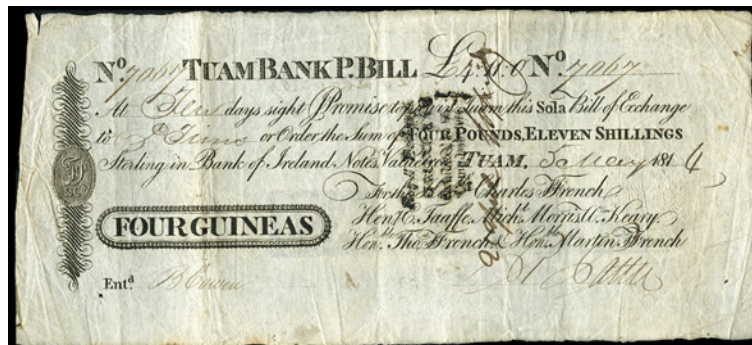 No. 7067 TUAM BANK P. BILL £4.11.0 No. 7067
At Ten days sight I Promise to pay in Tuam this Sola Bill of Exchange
to or Order, the Sum of FOUR POUNDS, ELEVEN SHILLINGS
Sterling in Bank of Ireland Notes, Value TUAM, 5 May 1814
For the Charles Ffrench
Honble. C. Taaffe, Michl. Morris, W. Keary,
FOUR GUINEAS
Honble. Thos. Ffrench & Honble. Martin Ffrench
Entd.